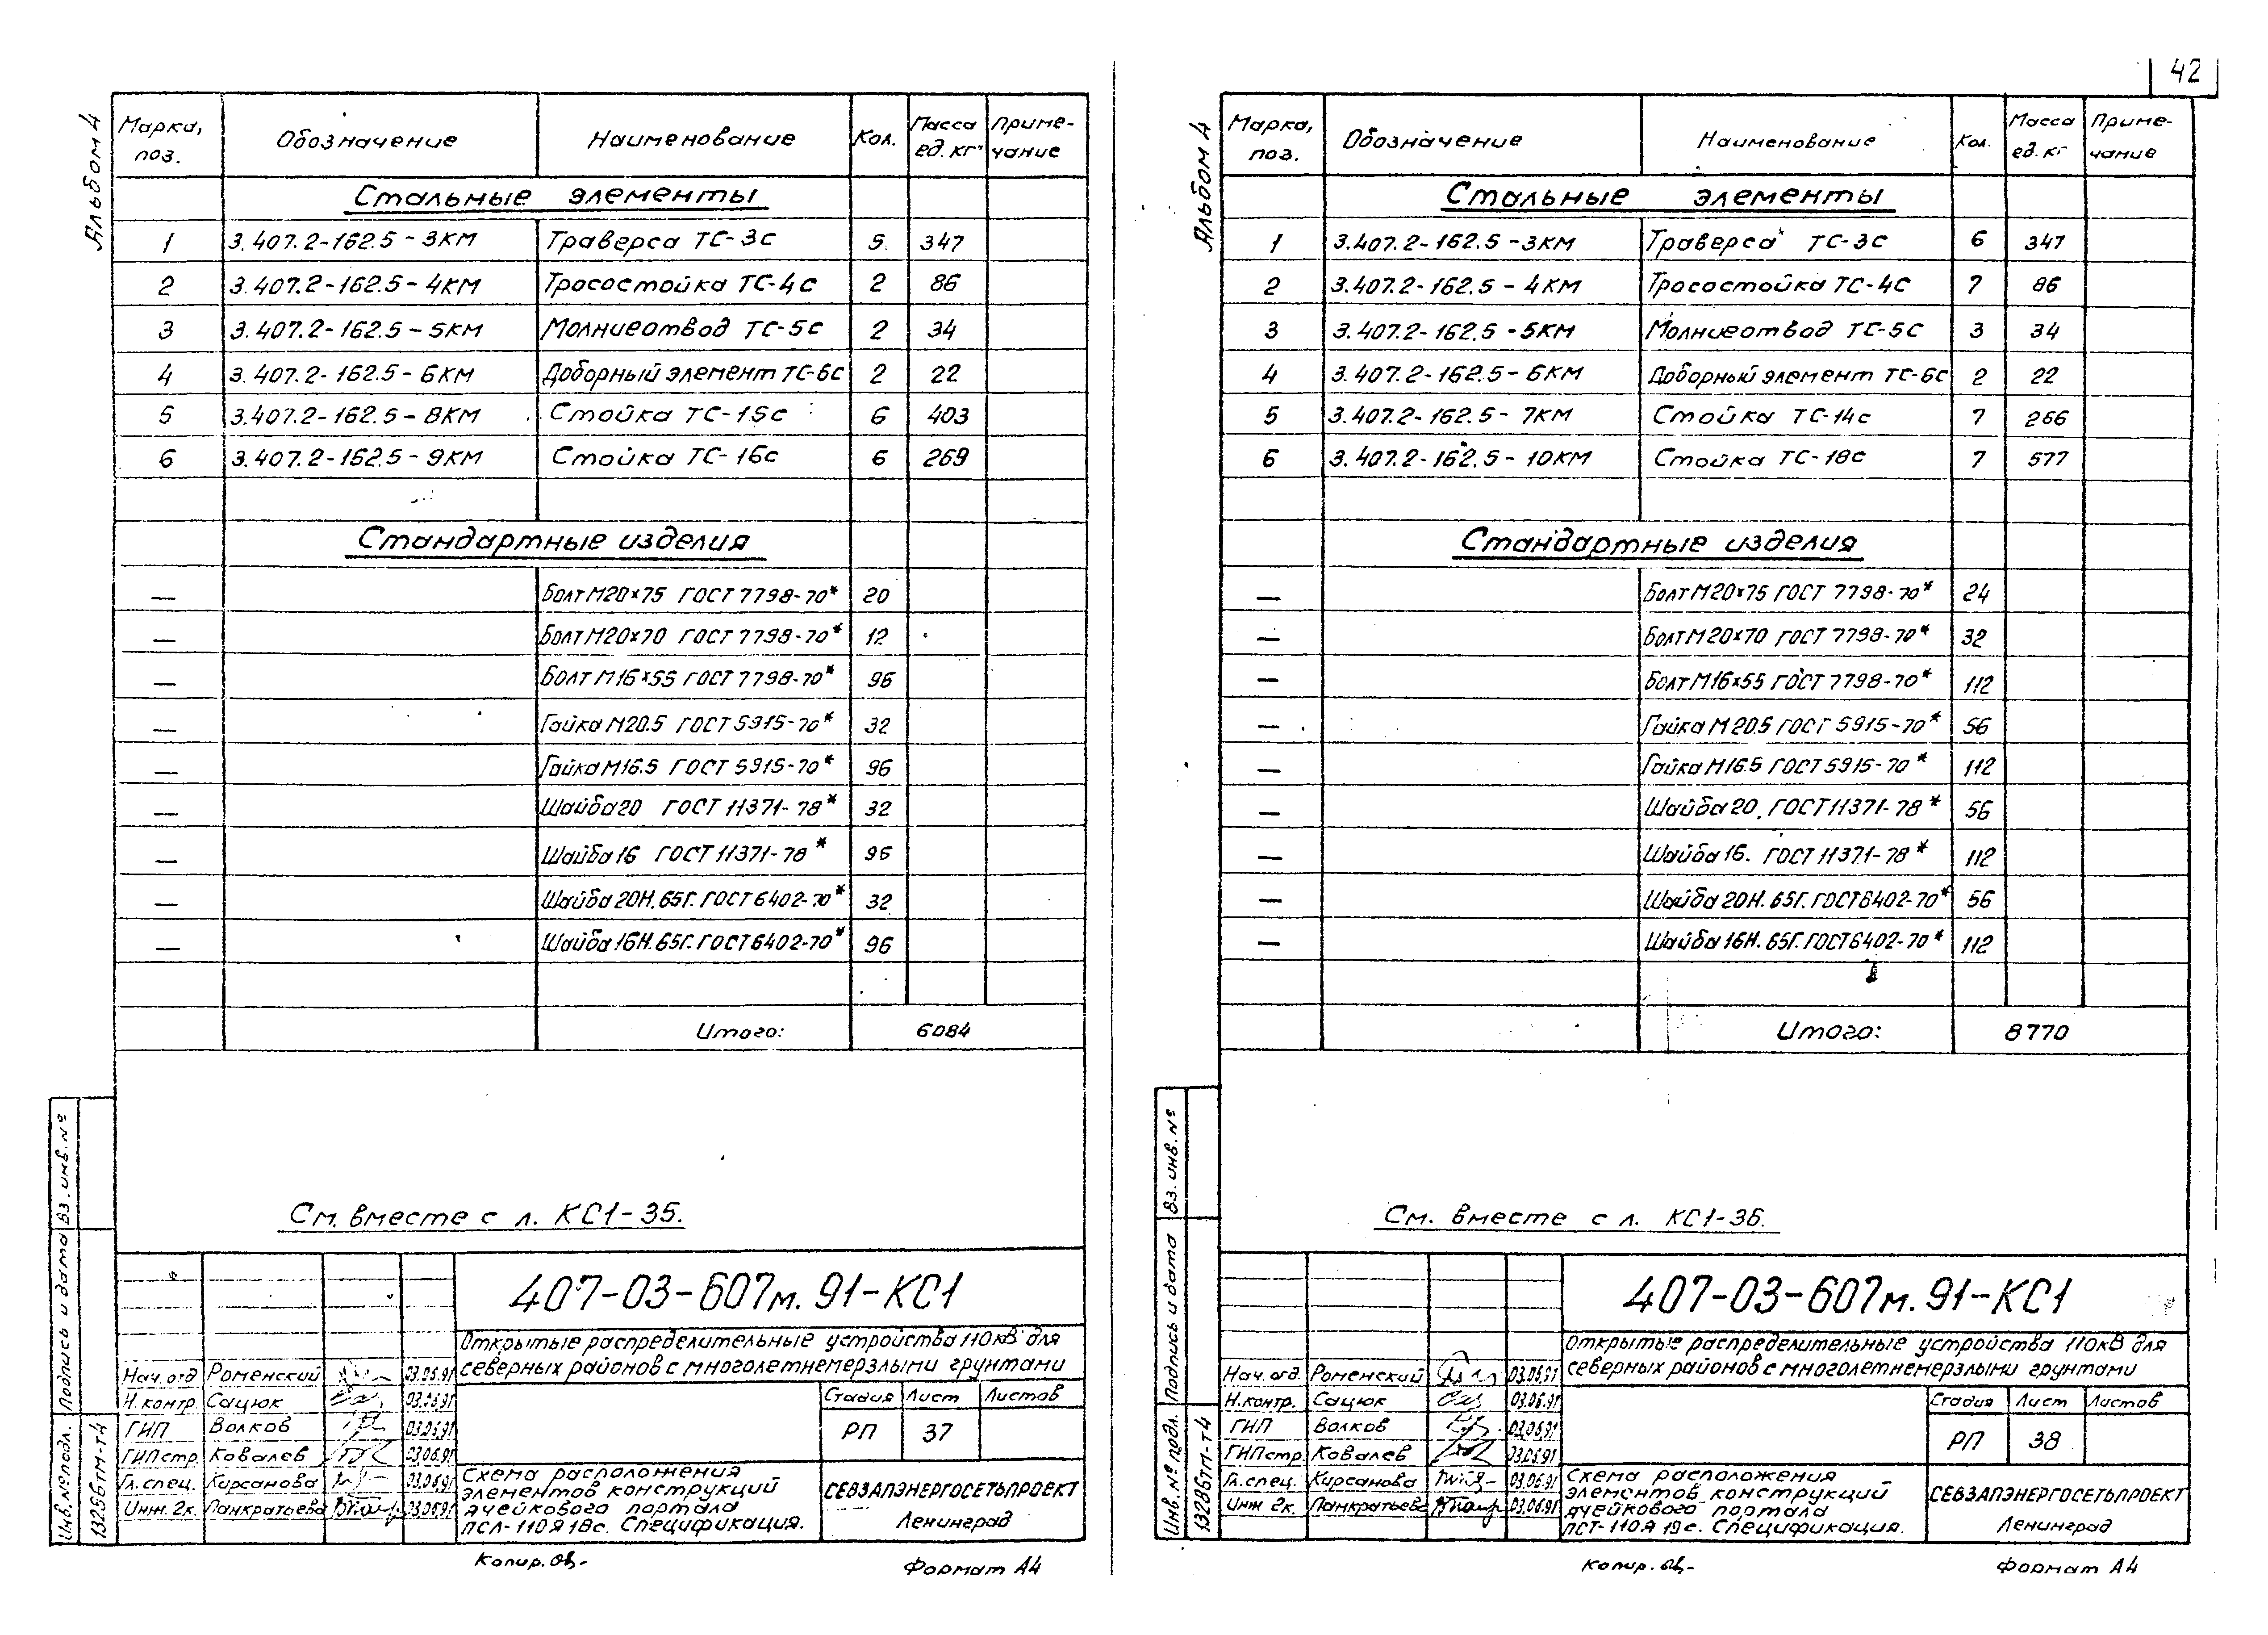 42
Альбом 4
Марка, поз. Обозначение Наименование Кол. Масса ед. кг Примечание
Стальные элементы
1 3.407.2-162.5-3КМ Траверса ТС-3с 5 347
2 3.407.2-162.5-4КМ Тросостойка ТС-4с 2 86
3 3.407.2-162.5-5КМ Молниеотвод ТС-5с 2 34
4 3.407.2-162.5-6КМ Доборный элемент ТС-6с 2 22
5 3.407.2-162.5-8КМ Стойка ТС-15с 6 403
6 3.407.2-162.5-9КМ Стойка ТС-16с 6 269
Стандартные изделия
— Болт М20×75 ГОСТ 7798-70* 20
— Болт М20×70 ГОСТ 7798-70* 12
— Болт М16×55 ГОСТ 7798-70* 96
— Гайка М20.5 ГОСТ 5915-70* 32
— Гайка М16.5 ГОСТ 5915-70* 96
— Шайба 20 ГОСТ 11371-78* 32
— Шайба 16 ГОСТ 11371-78* 96
— Шайба 20Н.65Г. ГОСТ 6402-70* 32
— Шайба 16Н.65Г. ГОСТ 6402-70* 96
Итого: 6084
См. вместе с л. КС1-35.
407-03-607м.91-КС1
Открытые распределительные устройства 110кВ для
северных районов с многолетнемерзлыми грунтами
Нач. отд Роменский 03.06.91
Н.контр. Сацюк 03.06.91
ГИП Волков 03.06.91
ГИП стр. Ковалев 03.06.91
Гл. спец. Кирсанова 03.06.91
Инж. 2к. Панкратьева 03.06.91
Стадия Лист Листов
РП 37
Схема расположения
элементов конструкций
ячейкового портала
ПСЛ-110Я18с. Спецификация.
СЕВЗАПЭНЕРГОСЕТЬПРОЕКТ
Ленинград
Инв. № подл. Подпись и дата Вз. инв. №
13286тм-т4
Копир.
Формат А4
Альбом 4
Марка, поз. Обозначение Наименование Кол. Масса ед. кг Примечание
Стальные элементы
1 3.407.2-162.5-3КМ Траверса ТС-3с 6 347
2 3.407.2-162.5-4КМ Тросостойка ТС-4с 7 86
3 3.407.2-162.5-5КМ Молниеотвод ТС-5с 3 34
4 3.407.2-162.5-6КМ Доборный элемент ТС-6с 2 22
5 3.407.2-162.5-7КМ Стойка ТС-14с 7 266
6 3.407.2-162.5-10КМ Стойка ТС-18с 7 577
Стандартные изделия
— Болт М20×75 ГОСТ 7798-70* 24
— Болт М20×70 ГОСТ 7798-70* 32
— Болт М16×55 ГОСТ 7798-70* 112
— Гайка М20.5 ГОСТ 5915-70* 56
— Гайка М16.5 ГОСТ 5915-70* 112
— Шайба 20. ГОСТ 11371-78* 56
— Шайба 16. ГОСТ 11371-78* 112
— Шайба 20Н.65Г. ГОСТ 6402-70* 56
— Шайба 16Н.65Г. ГОСТ 6402-70* 112
Итого: 8770
См. вместе с л. КС1-36.
407-03-607м.91-КС1
Открытые распределительные устройства 110кВ для
северных районов с многолетнемерзлыми грунтами
Нач. отд. Роменский 03.06.91
Н.контр. Сацюк 03.06.91
ГИП Волков 03.06.91
ГИП стр. Ковалев 03.06.91
Гл. спец. Кирсанова 03.06.91
Инж 2к. Панкратьева 03.06.91
Стадия Лист Листов
РП 38
Схема расположения
элементов конструкций
ячейкового портала
ПСТ-110Я 19с. Спецификация.
СЕВЗАПЭНЕРГОСЕТЬПРОЕКТ
Ленинград
Инв. № подл. Подпись и дата Вз. инв. №
13286тм-т4
Копир.
Формат А4